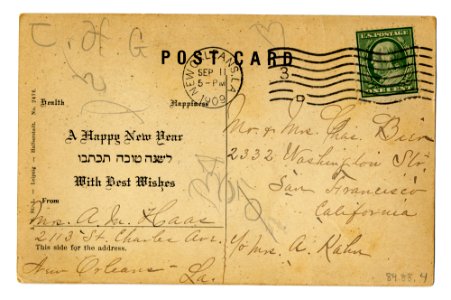 C. H G
POST CARD
U.S. POSTAGE
ONE CENT
NEW ORLEANS, LA.
SEP 11
5-PM
1909
3
D
Health Happiness
A Happy New Year
לשנה טובה תכתבו
With Best Wishes
From
Mrs. A. M. Haas
2113 St Charles Ave.
This side for the address.
New Orleans - La.
Mr. & Mrs. Chas. Bier
2332 Washington St.
San Francisco
California
c/o Mrs. A. Kahn
Leipzig - Halberstadt. No. 2474.
89.88.4